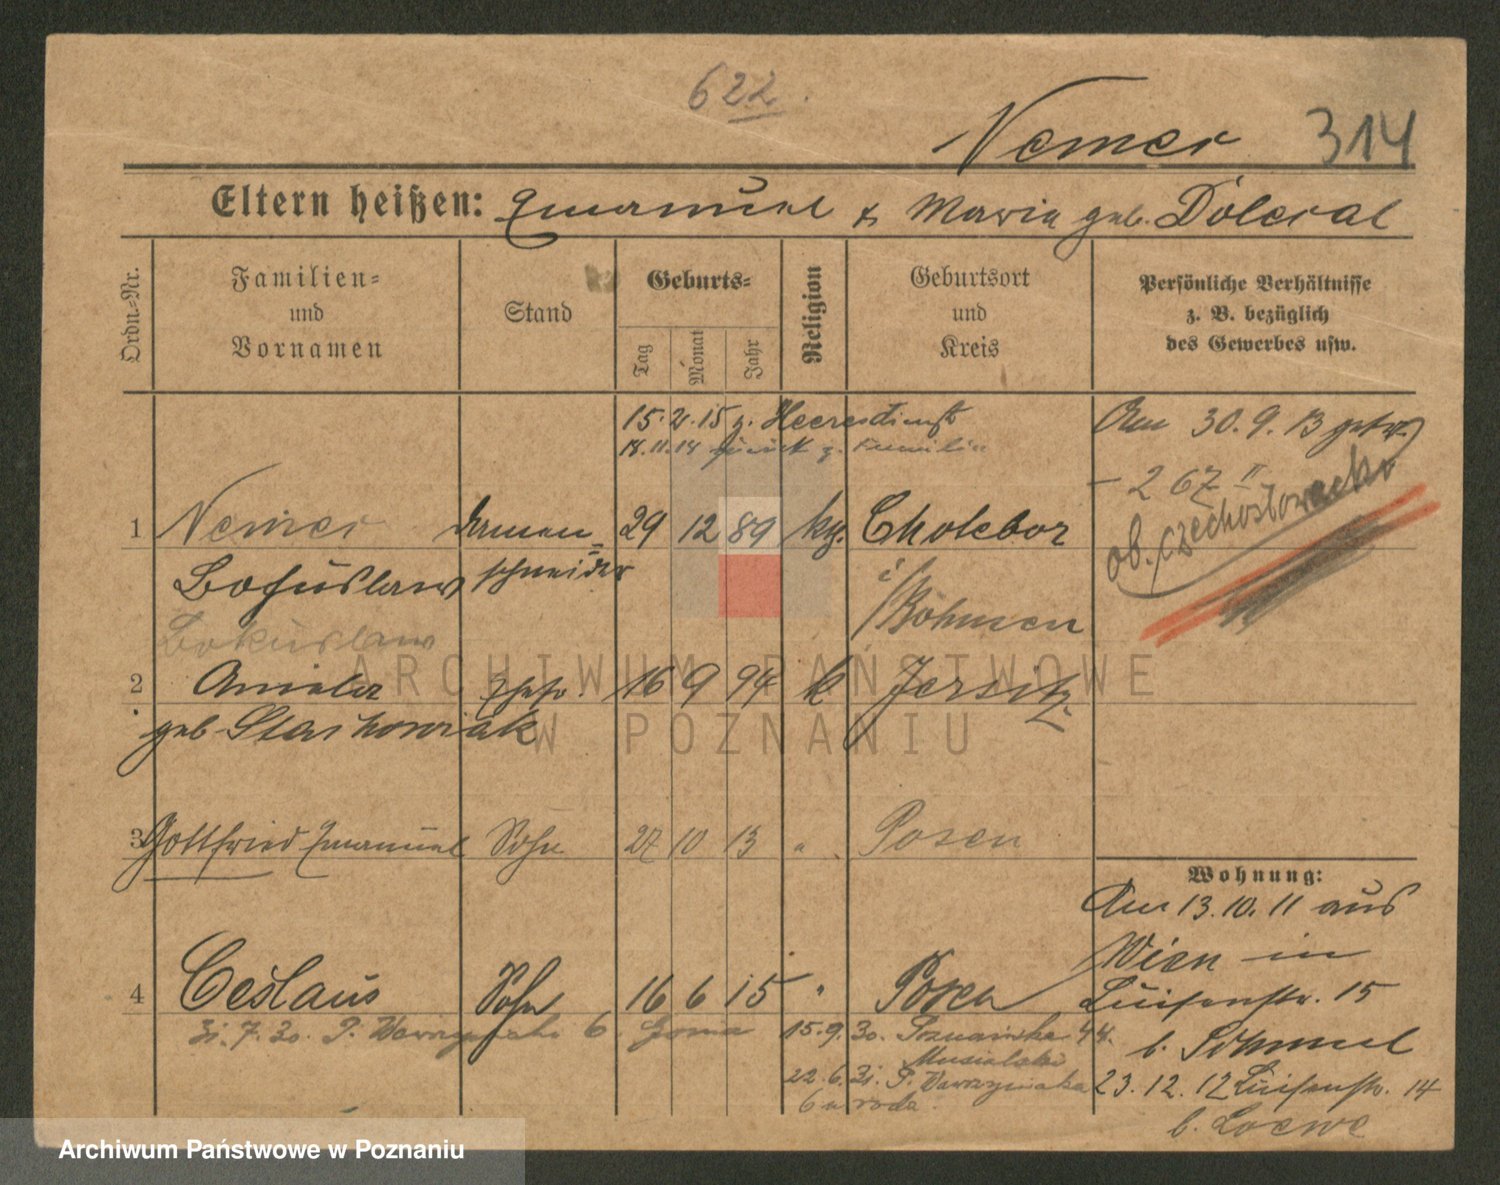 622.
Nemer 314
Eltern heißen: Emanuel & Maria geb. Doleral
Ordn.=Nr.
Familien= und Vornamen
Stand
Geburts=
Tag
Monat
Jahr
Religion
Geburtsort und Kreis
Persönliche Verhältnisse
z. B. bezüglich
des Gewerbes usw.
15.2.15 z. Heeresdienst
18.11.18 zurück z. Familie
Am 30.9.13 getr.
- 267 II
ob. czechosłowacki
1 Nemer Damen= 29 12 89 kth. Cholebor
Bohuslaw schneider i/Böhmen
Bokuslaw
2 Aniela Ehefr. 16 9 94 k Jersitz
geb Stachowiak
3 Gottfried Emanuel Sohn 27 10 13 " Posen
Wohnung:
Am 13.10.11 aus
Wien in
4 Ceslaus Sohn 16 6 15 " Posen
Luisenstr. 15
31.7.30. P. Wawrzyniaka 6. 15.9.30. Poznańska 44.
b. Sommel
Musialski
22.6.31. P. Wawrzyniaka
6 u roda.
23.12.12 Luisenstr. 14
b. Loewe
ARCHIWUM PAŃSTWOWE
W POZNANIU
Archiwum Państwowe w Poznaniu